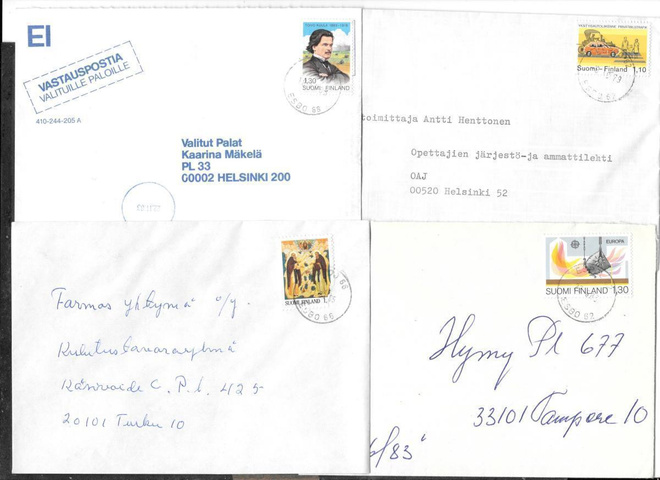 EI
VASTAUSPOSTIA
VALITUILLE PALOILLE
410-244-205 A
Valitut Palat
Kaarina Mäkelä
PL 33
00002 HELSINKI 200
1,30
SUOMI FINLAND
ESBO 65
SUOMI-FINLAND 1,10
toimittaja Antti Henttonen
Opettajien järjestö-ja ammattilehti
OAJ
00520 Helsinki 52
SUOMI FINLAND
ESBO 66
Farmos yhtymä o/y.
Kulutustavararyhmä
Käsivoide C. P.L. 425
20101 Turku 10
EUROPA
SUOMI FINLAND 1,30
ESBO 62
Hymy Pl 677
33101 Tampere 10
/83"